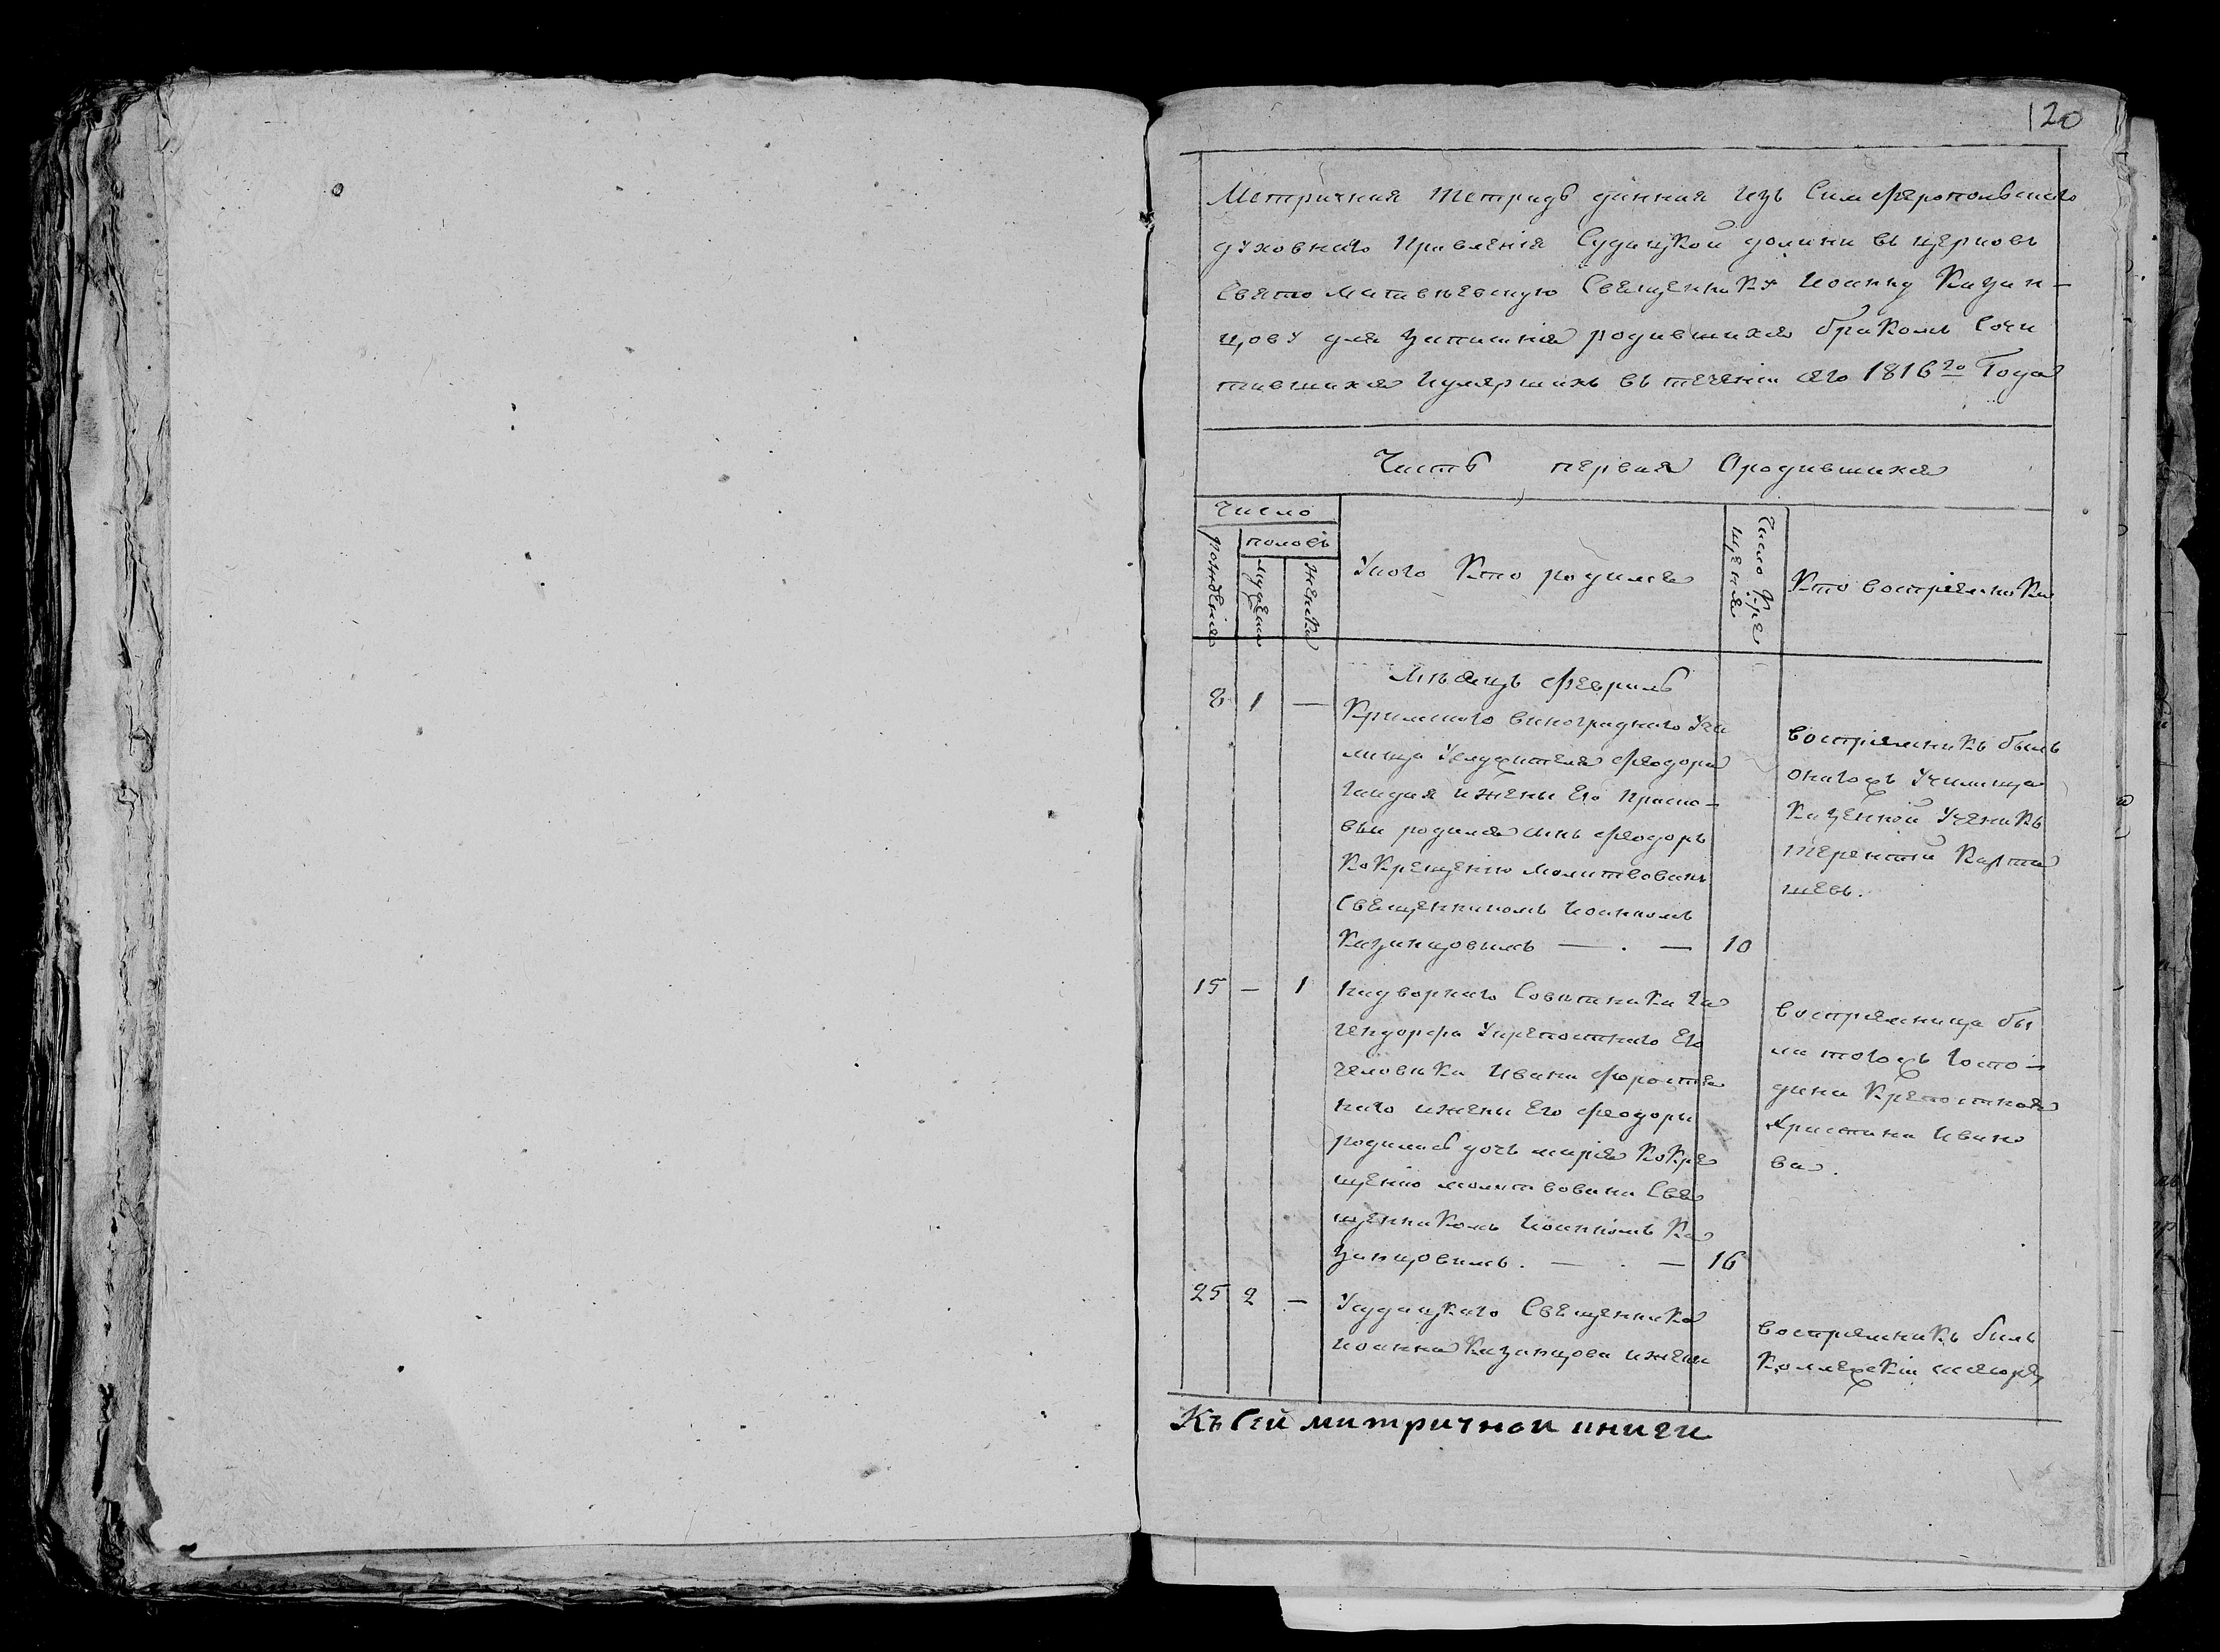 120
Метричная тетрадь данная изъ Симферопольскаго
духовнаго Правленія Судацкой долины въ церковь
Свято Матвѣевскую Священнику Иоанну Казан-
цову для записки родившихся бракомъ Сочи
тавшихся И умершихъ въ теченіи сего 1816го Года
Часть первая О родившихся
Число
рожденія
половъ
мужеска
женска
У кого Кто родился
Число Кре
щенія
Кто воспріемники
Мѣсяцъ февраль
8 1 — Крымскаго винограднаго Учи
лища Услужителя Феодора
Гайдая и жены Его Праско-
вьи родился сынъ Феодоръ
Ко Крещенію Молитвованъ
Священникомъ Иоанномъ
Казанцовымъ — . — 10
воспріемникъ былъ
онагожъ Училища
Казенной Ученикъ
Терентій Карта
шевъ.
15 — 1 Надворнаго Совѣтника Га
гендорфа У крепостнаго Его
человѣка Ивана
наго и жены Его Феодоры
родилась дочь марія Ко Кре
щенію молитвована Свя
щенникомъ Иоанномъ Ка
занцовымъ. — . — 16
воспріемница бы
ла тогожъ Госпо-
дина Крепостная
Христина Ивано
ва.
25 2 — У Судацкаго Священника
Иоанна Казанцова и жены
воспріемникъ былъ
Коллежскій
Къ Сей митричнои книги